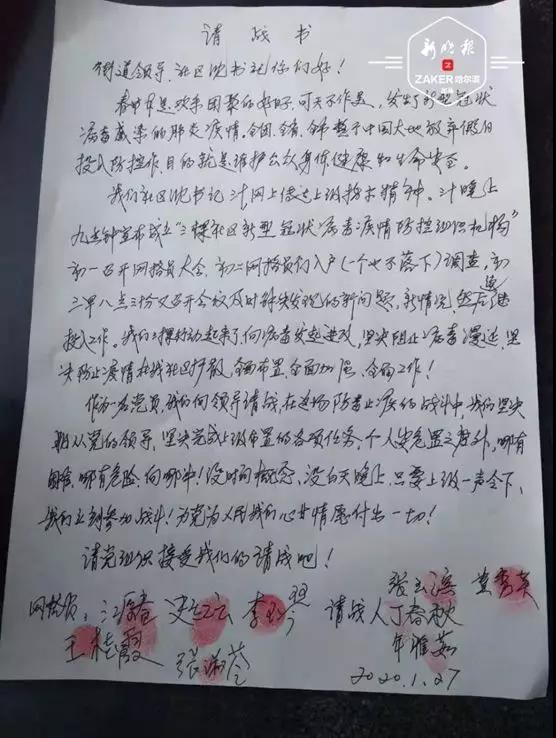 新晚报
ZAKER哈尔滨
请战书
街道领导、社区沈书记你们好！
春节是欢乐团聚的好日子,可天不作美,发生了新型冠状
病毒感染的肺炎疫情,全国、全省、全市整个中国大地放弃假日
投入防控工作、目的就是维护公众身体健康和生命安全。
我们社区沈书记三十网上传达上级指示精神。三十晚上
九点钟宣布成立“三棵社区新型冠状病毒疫情防控组织机构”
初一召开网格员大会、初二网格员们入户(一个也不落下)调查,初
三早八点三份又召开会议及时解决发现的新问题,新情况,然后
投入工作。我们行动起来了,向病毒发起进攻,坚决阻止病毒漫延,坚
决防止疫情在我社区扩散,全面布置、全面加强、全面工作！
作为一名党员,我们向领导请战,在这场防毒止疫的战斗中,我们坚决
服从党的领导,坚决完成上级布置的各项任务,个人安危置之度外,哪有
困难、哪有危险、向哪冲！没时间概念,没白天晚上,只要上级一声令下、
我们立刻参加战斗！为党为人民我们心甘情愿付出一切！
请党组织接受我们的请战吧！
网格员：
王桂霞
请战人丁春秋
2020.1.27